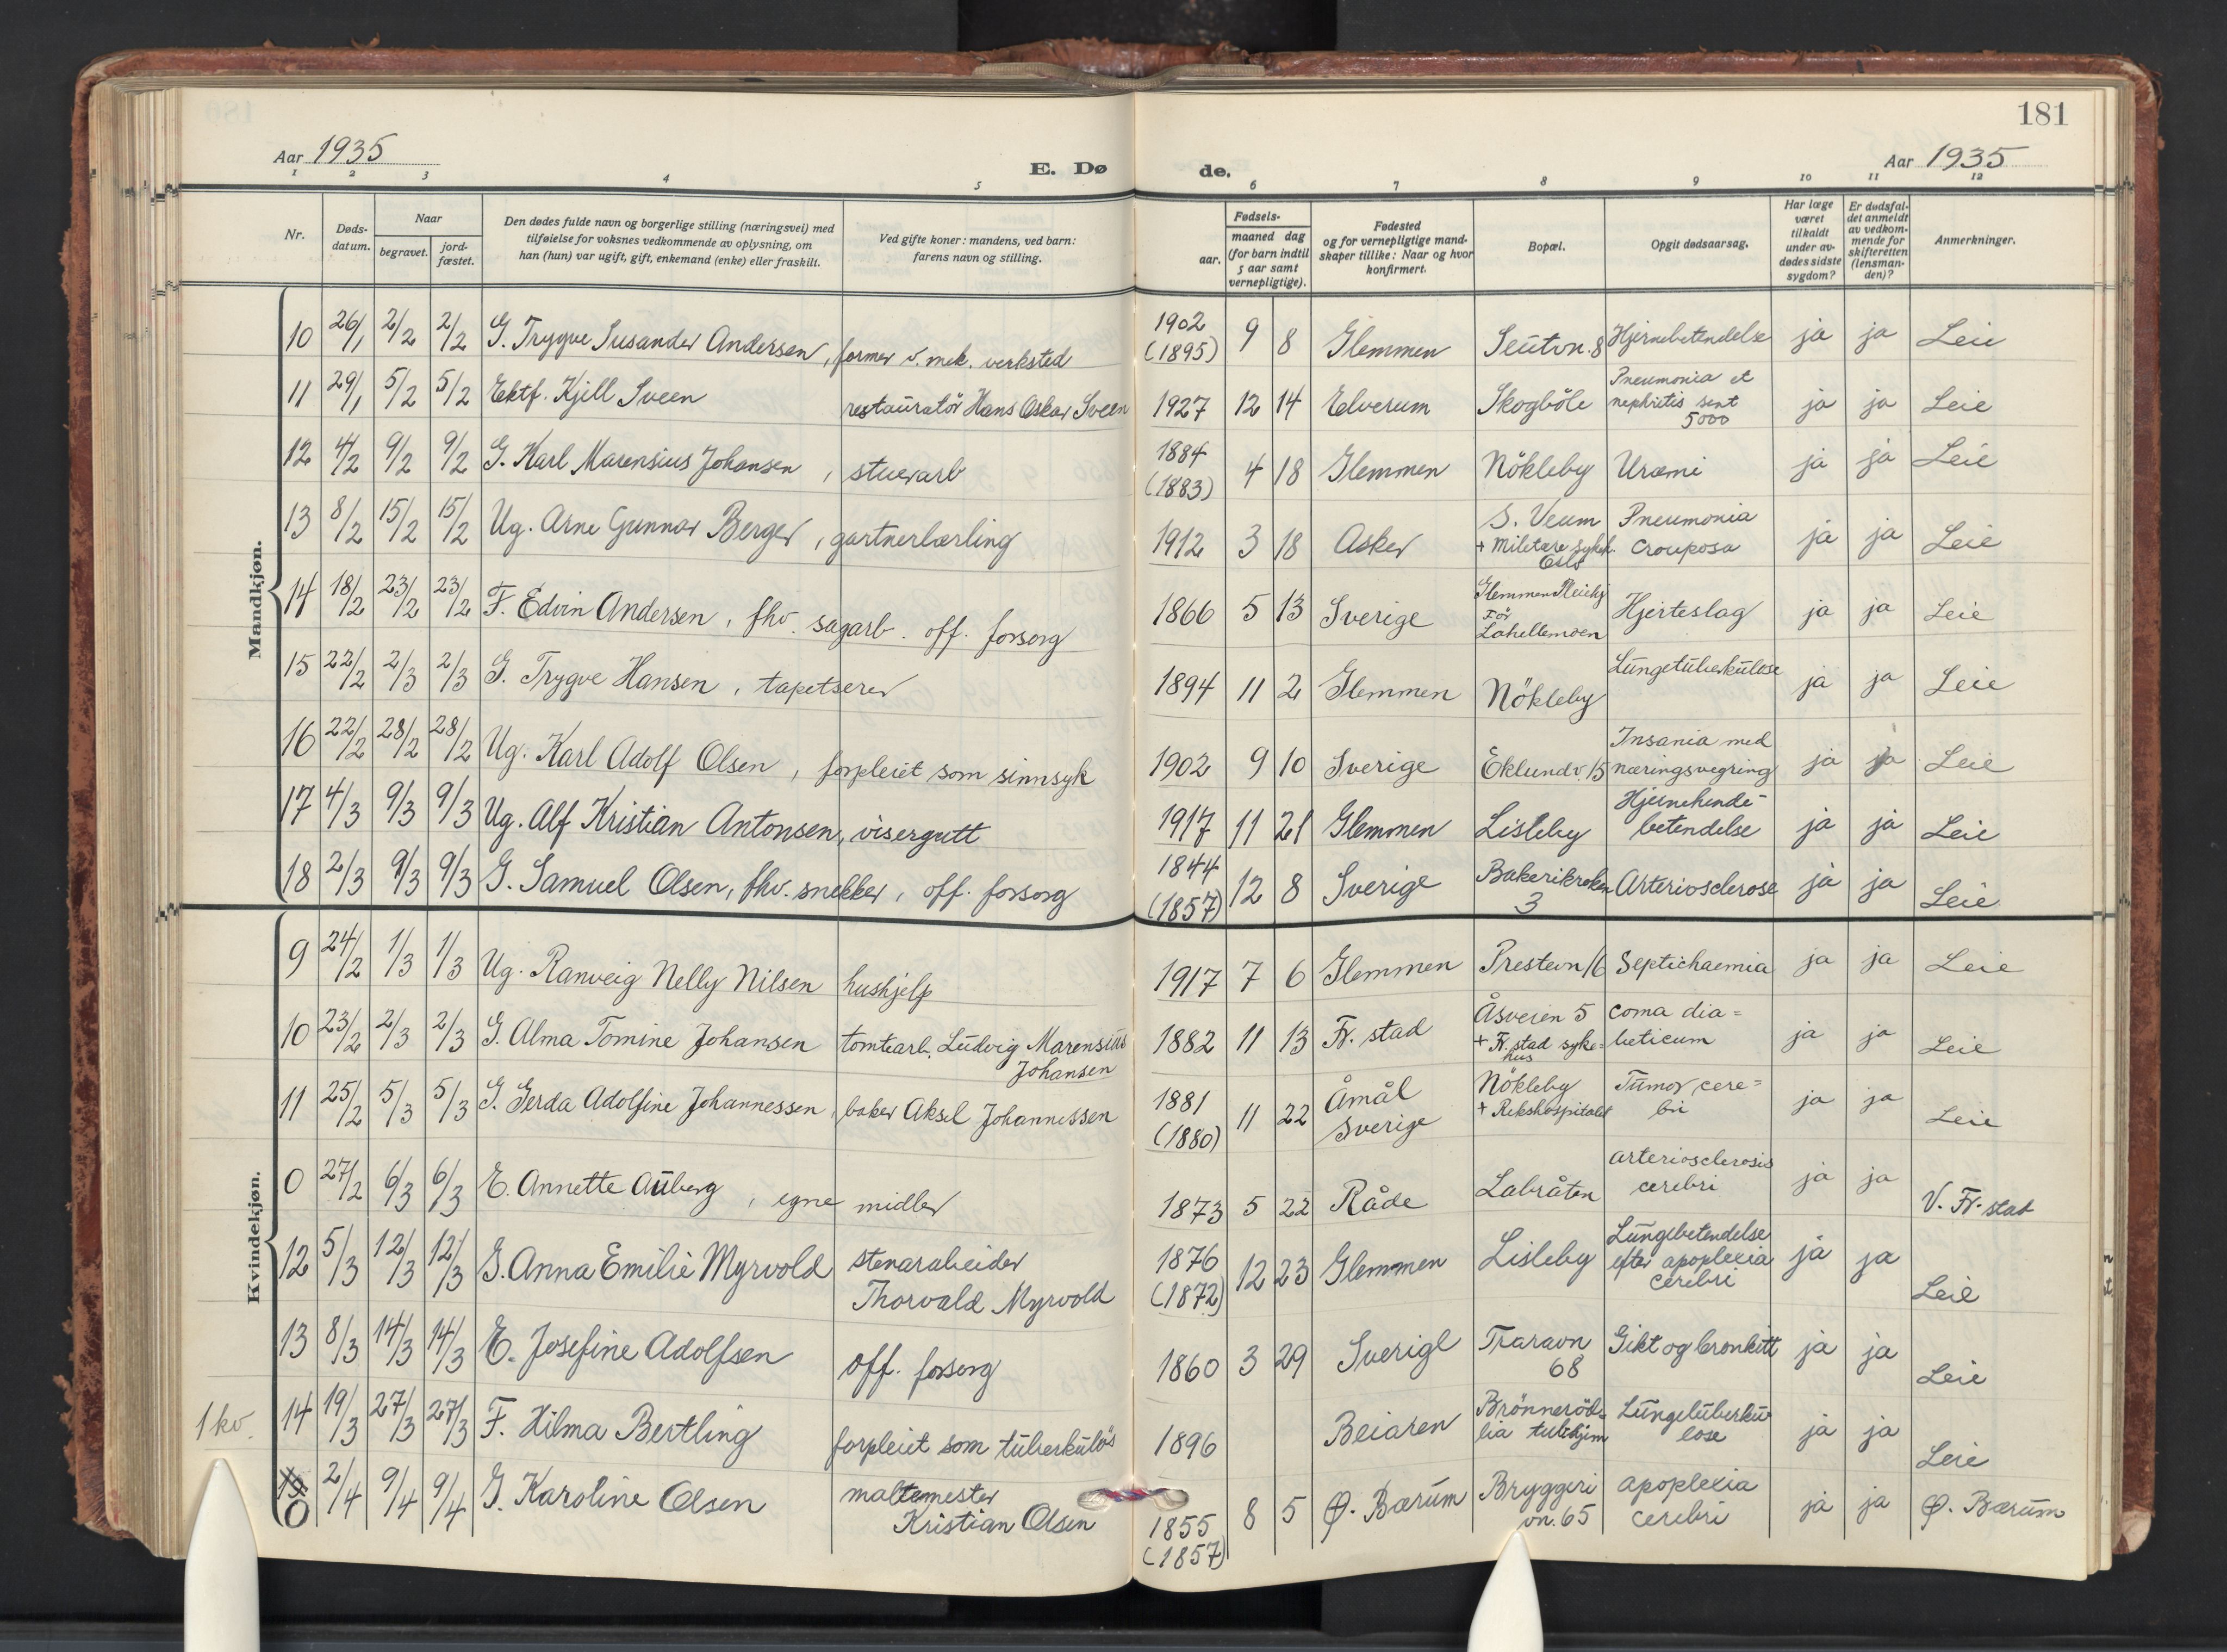 181
Aar 1935 E. Dø de. Aar 1935
1 2 3 4 5 6 7 8 9 10 11 12
Nr. Døds-datum. Naar begravet. jord-fæstet. Den dødes fulde navn og borgerlige stilling (næringsvei) med tilføielse for voksnes vedkommende av oplysning, om han (hun) var ugift, gift, enkemand (enke) eller fraskilt. Ved gifte koner: mandens, ved barn: farens navn og stilling. Fødsels- aar. maaned dag (for barn indtil 5 aar samt vernepligtige). Fødested og for vernepligtige mand-skaper tillike: Naar og hvor konfirmert. Bopæl. Opgit dødsaarsag. Har læge været tilkaldt under av-dødes sidste sygdom? Er dødsfal-det anmeldt av vedkom-mende for skifteretten (lensman-den)? Anmerkninger.
Mandkjøn.
10 26/1 2/2 2/2 G. Trygve Susander Andersen, former v. mek. verksted 1902 (1895) 9 8 Glemmen Seutvn. 8 Hjernebetendelse ja ja Leie
11 29/1 5/2 5/2 Ektf. Kjell Sveen restauratör Hans Oskar Sveen 1927 12 14 Elverum Skogböle Pneumonia et nephritis sent 5000 ja ja Leie
12 4/2 9/2 9/2 G. Karl Marensius Johansen, stuerarb 1884 (1883) 4 18 Glemmen Nökleby Uræmi ja ja Leie
13 8/2 15/2 15/2 Ug. Arne Gunnar Berger, gartnerlærling 1912 3 18 Asker S. Veum + Militære sykeh. Oslo Pneumonia crouposa ja ja Leie
14 18/2 23/2 23/2 F. Edvin Andersen, fhv. sagarb. off. forsorg 1866 5 13 Sverige Glemmen Pleiehj För Lahellemoen Hjerteslag ja ja Leie
15 22/2 2/3 2/3 G. Trygve Hansen, tapetserer 1894 11 2 Glemmen Nökleby Lungetuberkulose ja ja Leie
16 22/2 28/2 28/2 Ug. Karl Adolf Olsen, forpleiet som sinnsyk 1902 9 10 Sverige Eklundv. 15 Insania med næringsvegring ja ja Leie
17 4/3 9/3 9/3 Ug. Alf Kristian Antonsen, visergutt 1917 11 21 Glemmen Lisleby Hjernehinde-betendelse ja ja Leie
18 2/3 9/3 9/3 G. Samuel Olsen, fhv. snekker, off. forsorg 1844 (1857) 12 8 Sverige Bakerikroken 3 Arteriosclerose ja ja Leie
Kvindekjøn.
9 24/2 1/3 1/3 Ug. Ranveig Nelly Nilsen hushjelp 1917 7 6 Glemmen Prestevn 16 Septichaemia ja ja Leie
10 23/2 2/3 2/3 G. Alma Tomine Johansen tomtearb. Ludvig Marensius Johansen 1882 11 13 Fr. stad Åsveien 5 + Fr. stad syke=hus coma dia=beticum ja ja Leie
11 25/2 5/3 5/3 G. Gerda Adolfine Johannessen, baker Aksel Johannessen 1881 (1880) 11 22 Åmål Sverige Nökleby + Rikshospitalet Tumor cere=bri ja ja Leie
0 27/2 6/3 6/3 E. Annette Auberg, egne midler 1873 5 22 Råde Labråten arteriosclerosis cerebri ja ja V. Fr. stad
12 5/3 12/3 12/3 G. Anna Emilie Myrvold stenarabeider Thorvald Myrvold 1876 (1872) 12 23 Glemmen Lisleby Lungebetendelse efter apoplexia cerebri ja ja Leie
13 8/3 14/3 14/3 E. Josefine Adolfsen off. forsorg 1860 3 29 Sverige Traravn 68 Gikt og bronkitt ja ja Leie
1 kv. 14 19/3 27/3 27/3 F. Hilma Bertling forpleiet som tuberkulös 1896 Beiaren Brönneröd=lia tubhjem Lungetuberku lose ja ja Leie
0 2/4 9/4 9/4 G. Karoline Olsen maltemester Kristian Olsen 1855 (1857) 8 5 Ø. Bærum Bryggeri vn. 65 apoplexia cerebri ja ja Ø. Bærum